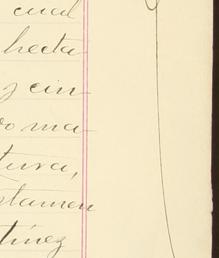 cual
hecta
y cin
vo ma
tura,
stamen
tinez